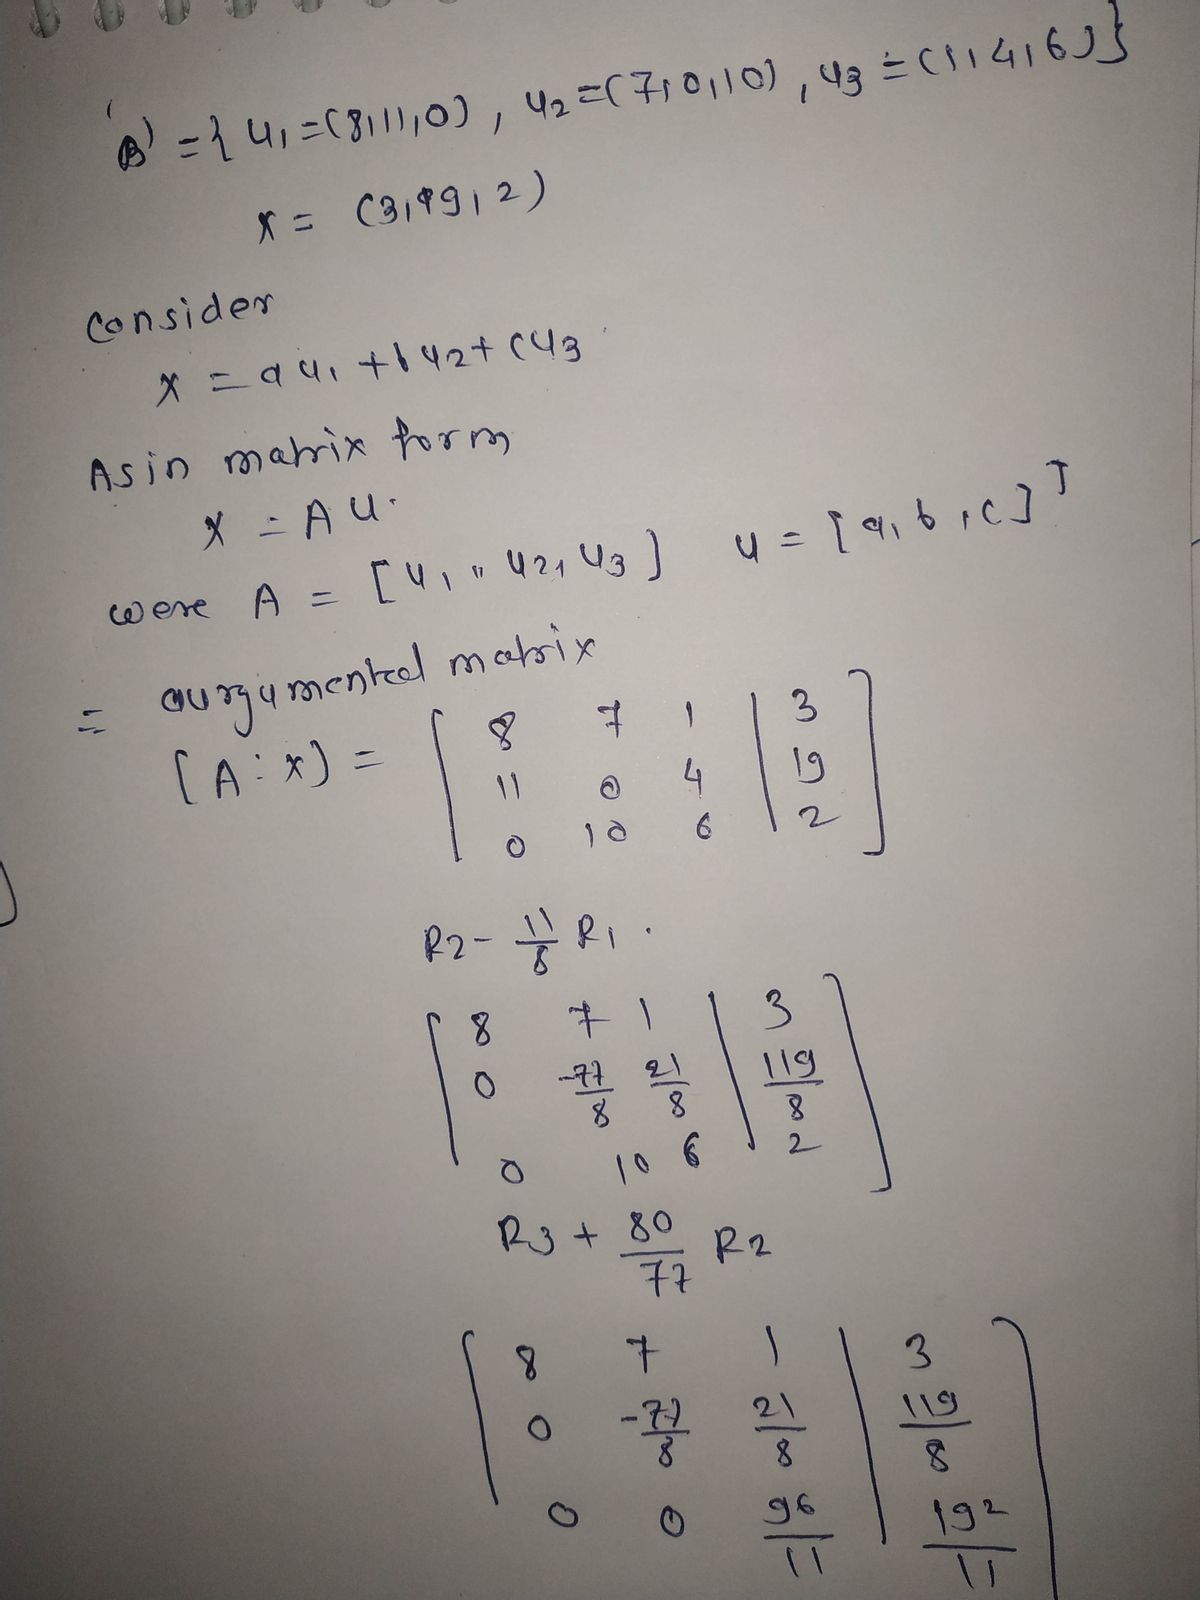 B' = { u1 = (8,11,0), u2 = (7,0,10), u3 = (1,4,6) }
x = (3,19,2)
Consider
x = a u1 + b u2 + c u3
As in matrix form
x = A u.
were A = [ u1, u2, u3 ] u = [a, b, c]T
= aurgumented matrix
[A : x) = [ 8 7 1 | 3 ]
11 0 4 | 19
0 10 6 | 2
R2 - 11/8 R1 .
[ 8 7 1 | 3 ]
0 -77/8 21/8 | 119/8
0 10 6 | 2
R3 + 80/77 R2
[ 8 7 1 | 3 ]
0 -77/8 21/8 | 119/8
0 0 96/11 | 192/11